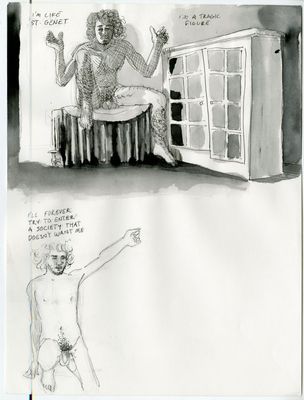 I'M LIFE
ST. GENET
I'M A TRAGIC
FIGURE
I'LL FOREVER
TRY TO ENTER
A SOCIETY THAT
DOESNT WANT ME